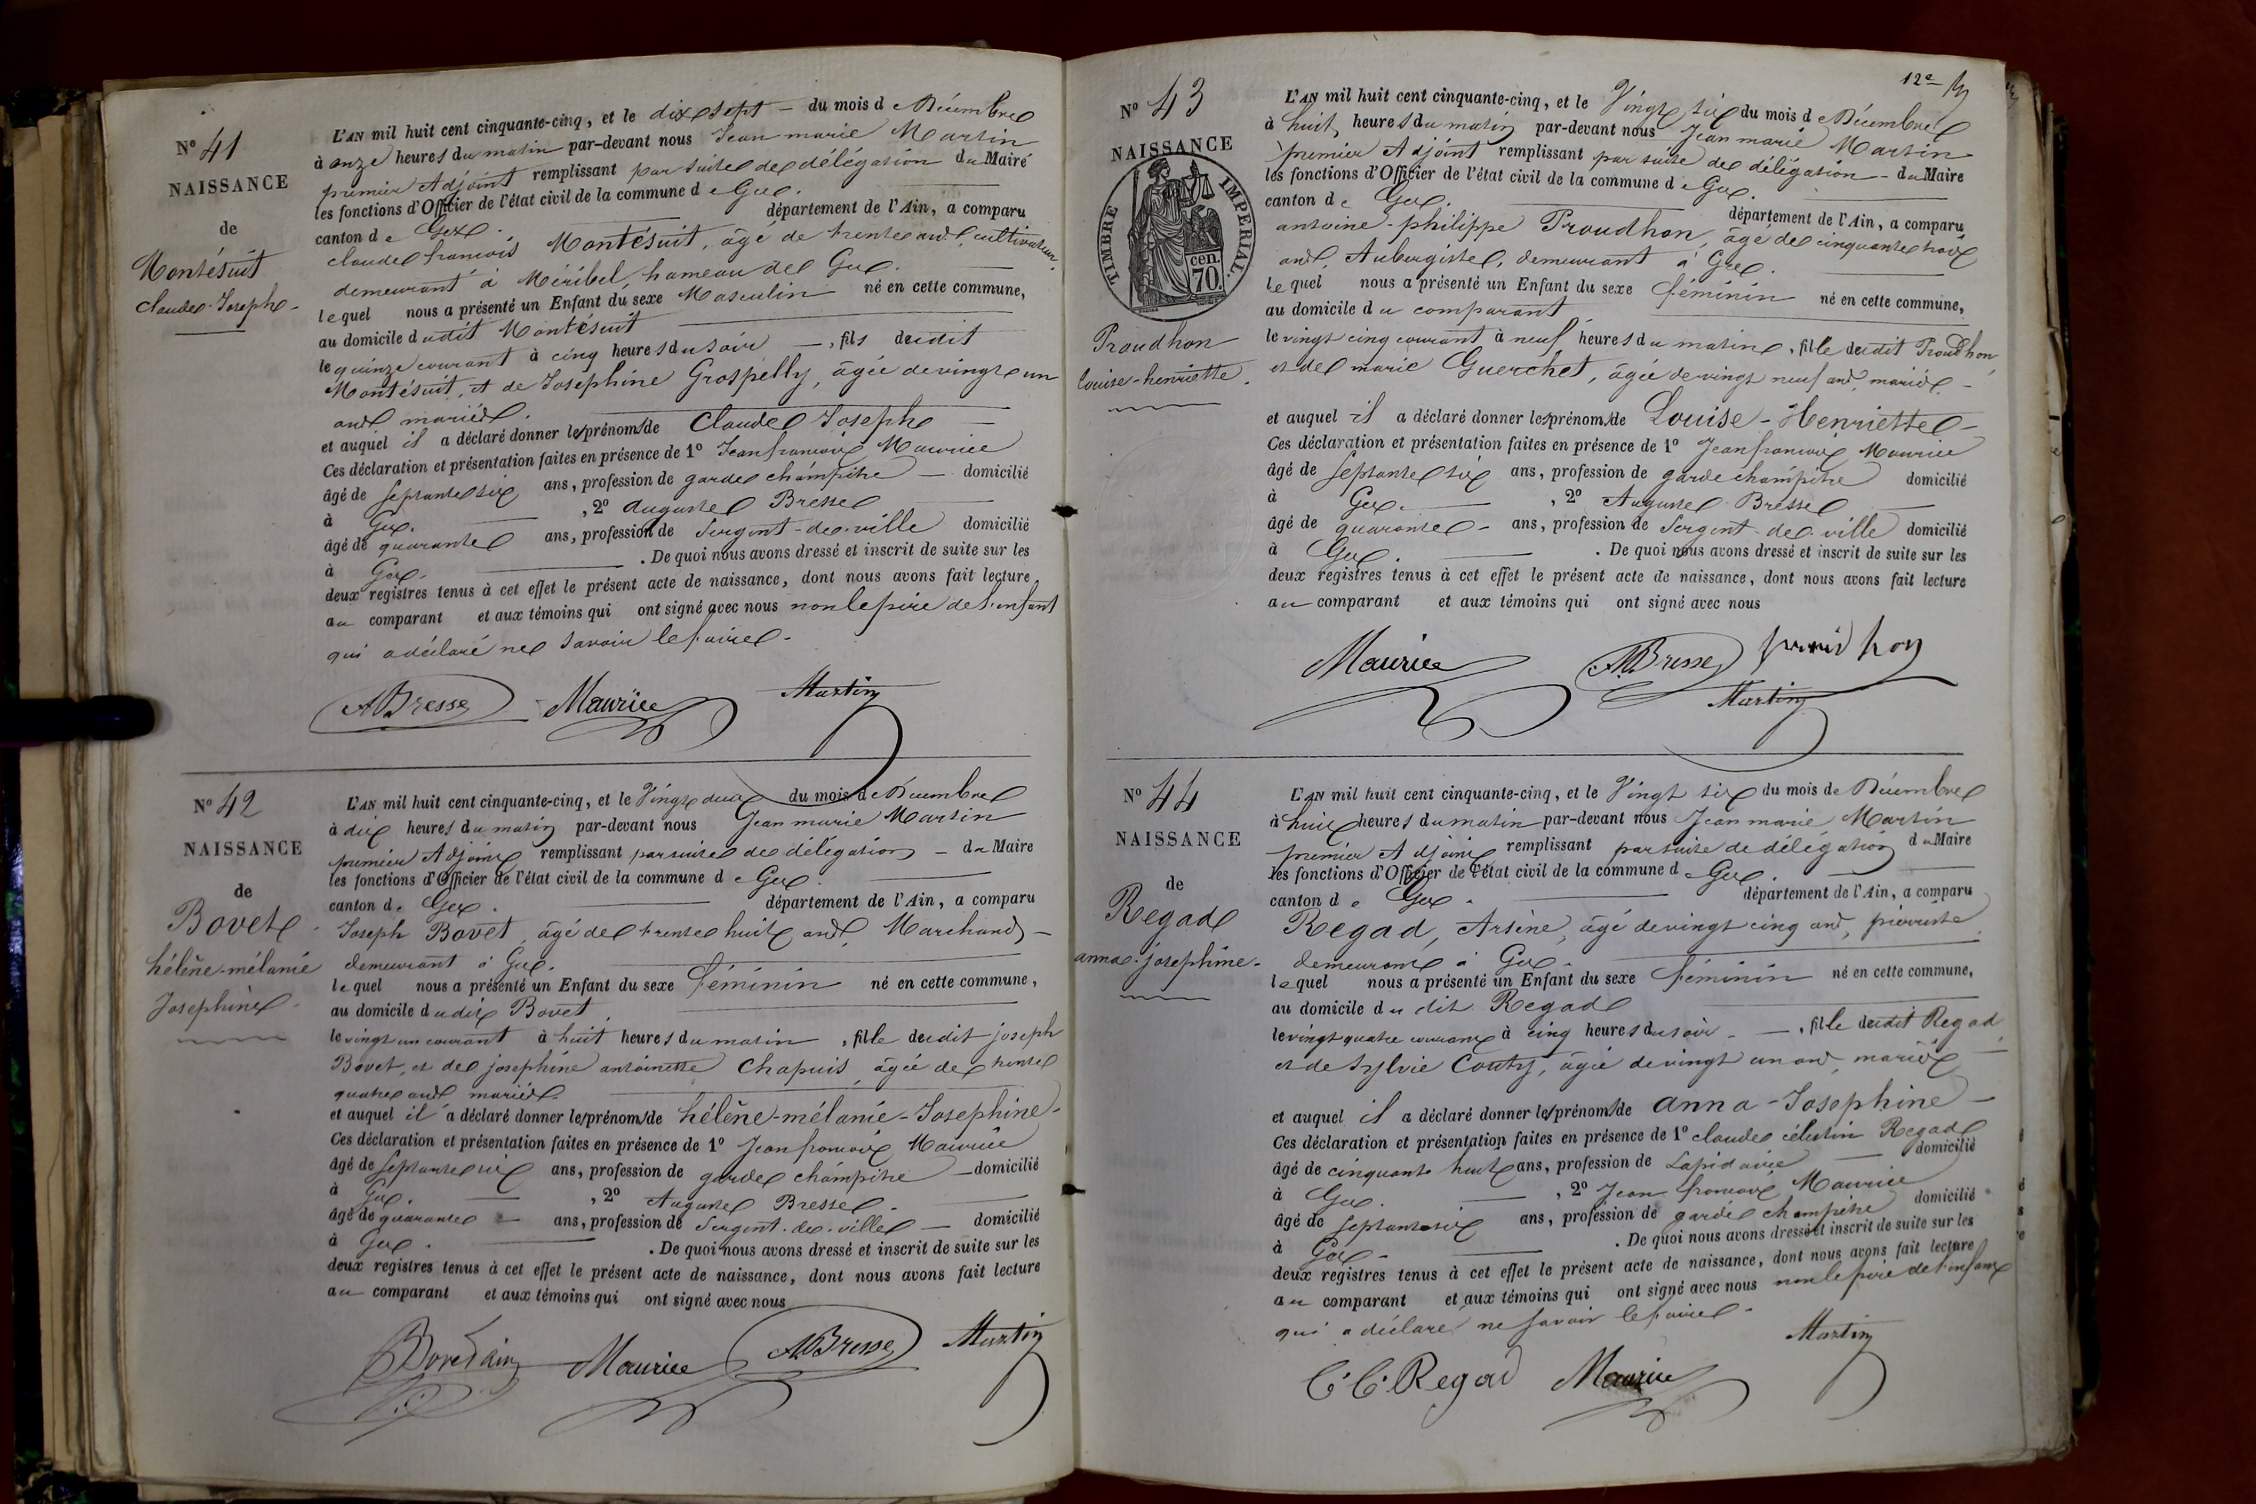 N° 41
NAISSANCE
de
Montésuit
claude-Joseph-
L'AN mil huit cent cinquante-cinq, et le dix sept - du mois de Décembre
à onze heures du matin par-devant nous Jean marie Martin
premier Adjoint remplissant par suite de délégation du Maire
les fonctions d'Officier de l'état civil de la commune de Gex.
canton de Gex. département de l'Ain, a comparu
claude françois Montésuit, âgé de trente ans, cultivateur,
demeurant à Méribel, hameau de Gex.
lequel nous a présenté un Enfant du sexe Masculin né en cette commune,
au domicile dudit Montésuit
le quinze courant à cinq heures du soir —, fils dudit
Montésuit, et de Josephine Grospelly, âgée de vingt un
ans mariés.
et auquel il a déclaré donner les prénoms de Claude Joseph
Ces déclaration et présentation faites en présence de 1° Jean françois Maurice
âgé de septante six ans, profession de garde champêtre — domicilié
à Gex. , 2° Auguste Bresse
âgé de quarante ans, profession de Sergent-de-ville domicilié
à Gex. . De quoi nous avons dressé et inscrit de suite sur les
deux registres tenus à cet effet le présent acte de naissance, dont nous avons fait lecture
au comparant et aux témoins qui ont signé avec nous non le père de l'enfant
qui a déclaré ne savoir le faire.
ABresse Maurice Martin
N° 42
NAISSANCE
de
Bovet
hélène-mélanie
Josephine
L'AN mil huit cent cinquante-cinq, et le Vingt deux du mois de Décembre
à dix heures du matin par-devant nous Jean marie Martin
premier Adjoint remplissant par suite de délégation - du Maire
les fonctions d'Officier de l'état civil de la commune de Gex.
canton de Gex. département de l'Ain, a comparu
Joseph Bovet, âgé de trente huit ans, Marchand -
demeurant à Gex.
lequel nous a présenté un Enfant du sexe féminin né en cette commune,
au domicile dudit Bovet
le vingt un courant à huit heures du matin , fille dudit joseph
Bovet, et de joséphine antoinette Chapuis, âgée de trente
quatre ans mariés.
et auquel il a déclaré donner les prénoms de hélène-mélanie-Josephine-
Ces déclaration et présentation faites en présence de 1° Jean françois Maurice
âgé de septante six ans, profession de garde champêtre — domicilié
à Gex. , 2° Auguste Bresse.
âgé de quarante - ans, profession de Sergent-de-ville — domicilié
à Gex. . De quoi nous avons dressé et inscrit de suite sur les
deux registres tenus à cet effet le présent acte de naissance, dont nous avons fait lecture
au comparant et aux témoins qui ont signé avec nous
Maurice ABresse Martin
12e
N° 43
NAISSANCE
TIMBRE IMPERIAL.
cen.
70.
Proudhon
louise-henriette.
L'AN mil huit cent cinquante-cinq, et le Vingt six du mois de Décembre
à huit heures du matin par-devant nous Jean marie Martin
premier Adjoint remplissant par suite de délégation - du Maire
les fonctions d'Officier de l'état civil de la commune de Gex.
canton de Gex. département de l'Ain, a comparu
antoine-philippe Proudhon, âgé de cinquante trois
ans, Aubergiste, demeurant à Gex.
lequel nous a présenté un Enfant du sexe féminin né en cette commune,
au domicile du comparant
le vingt cinq courant à neuf heures du matin , fille dudit Proudhon,
et de marie Guerchet, âgée de vingt neuf ans, mariés -
et auquel il a déclaré donner les prénoms de Louise-Henriette-
Ces déclaration et présentation faites en présence de 1° Jean françois Maurice
âgé de septante six ans, profession de garde champêtre domicilié
à Gex. , 2° Auguste Bresse
âgé de quarante - ans, profession de Sergent-de-ville domicilié
à Gex. . De quoi nous avons dressé et inscrit de suite sur les
deux registres tenus à cet effet le présent acte de naissance, dont nous avons fait lecture
au comparant et aux témoins qui ont signé avec nous
Maurice ABresse proudhon
Martin
N° 44
NAISSANCE
de
Regad
anna-josephine-
L'AN mil huit cent cinquante-cinq, et le Vingt six du mois de Décembre
à huit heures du matin par-devant nous Jean marie Martin
premier Adjoint remplissant par suite de délégation du Maire
les fonctions d'Officier de l'état civil de la commune de Gex.
canton de Gex. département de l'Ain, a comparu
Regad, Arsène, âgé de vingt cinq ans, pierriste
demeurant à Gex.
lequel nous a présenté un Enfant du sexe féminin né en cette commune,
au domicile du dit Regad
le vingt quatre courant à cinq heures du soir - —, fille dudit Regad,
et de Sylvie Couty, âgée de vingt un ans, mariés
et auquel il a déclaré donner les prénoms de anna-Josephine —
Ces déclaration et présentation faites en présence de 1° claude célestin Regad
âgé de cinquante huit ans, profession de Lapidaire — domicilié
à Gex. , 2° Jean françois Maurice
âgé de septante six ans, profession de garde champêtre domicilié
à Gex - . De quoi nous avons dressé et inscrit de suite sur les
deux registres tenus à cet effet le présent acte de naissance, dont nous avons fait lecture
au comparant et aux témoins qui ont signé avec nous non le père de l'enfant
qui a déclaré ne savoir le faire.
C.C. Regad Maurice Martin